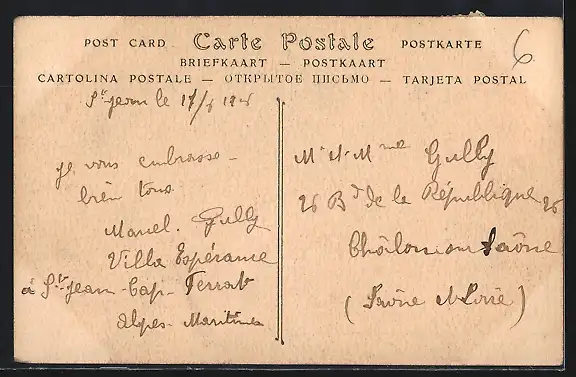 POST CARD Carte Postale POSTKARTE
BRIEFKAART — POSTKAART
CARTOLINA POSTALE — ОТКРЫТОЕ ПИСЬМО — TARJETA POSTAL
6
St Jean le 17/
je vous embrasse
bien tous
Marcel. Gully
Villa Espérance
à St-Jean-Cap-Ferrat
Alpes-Maritimes
Mr et Mme Gully
26 Bd de la République 26
Châlon sur Saône
(Saône et Loire)